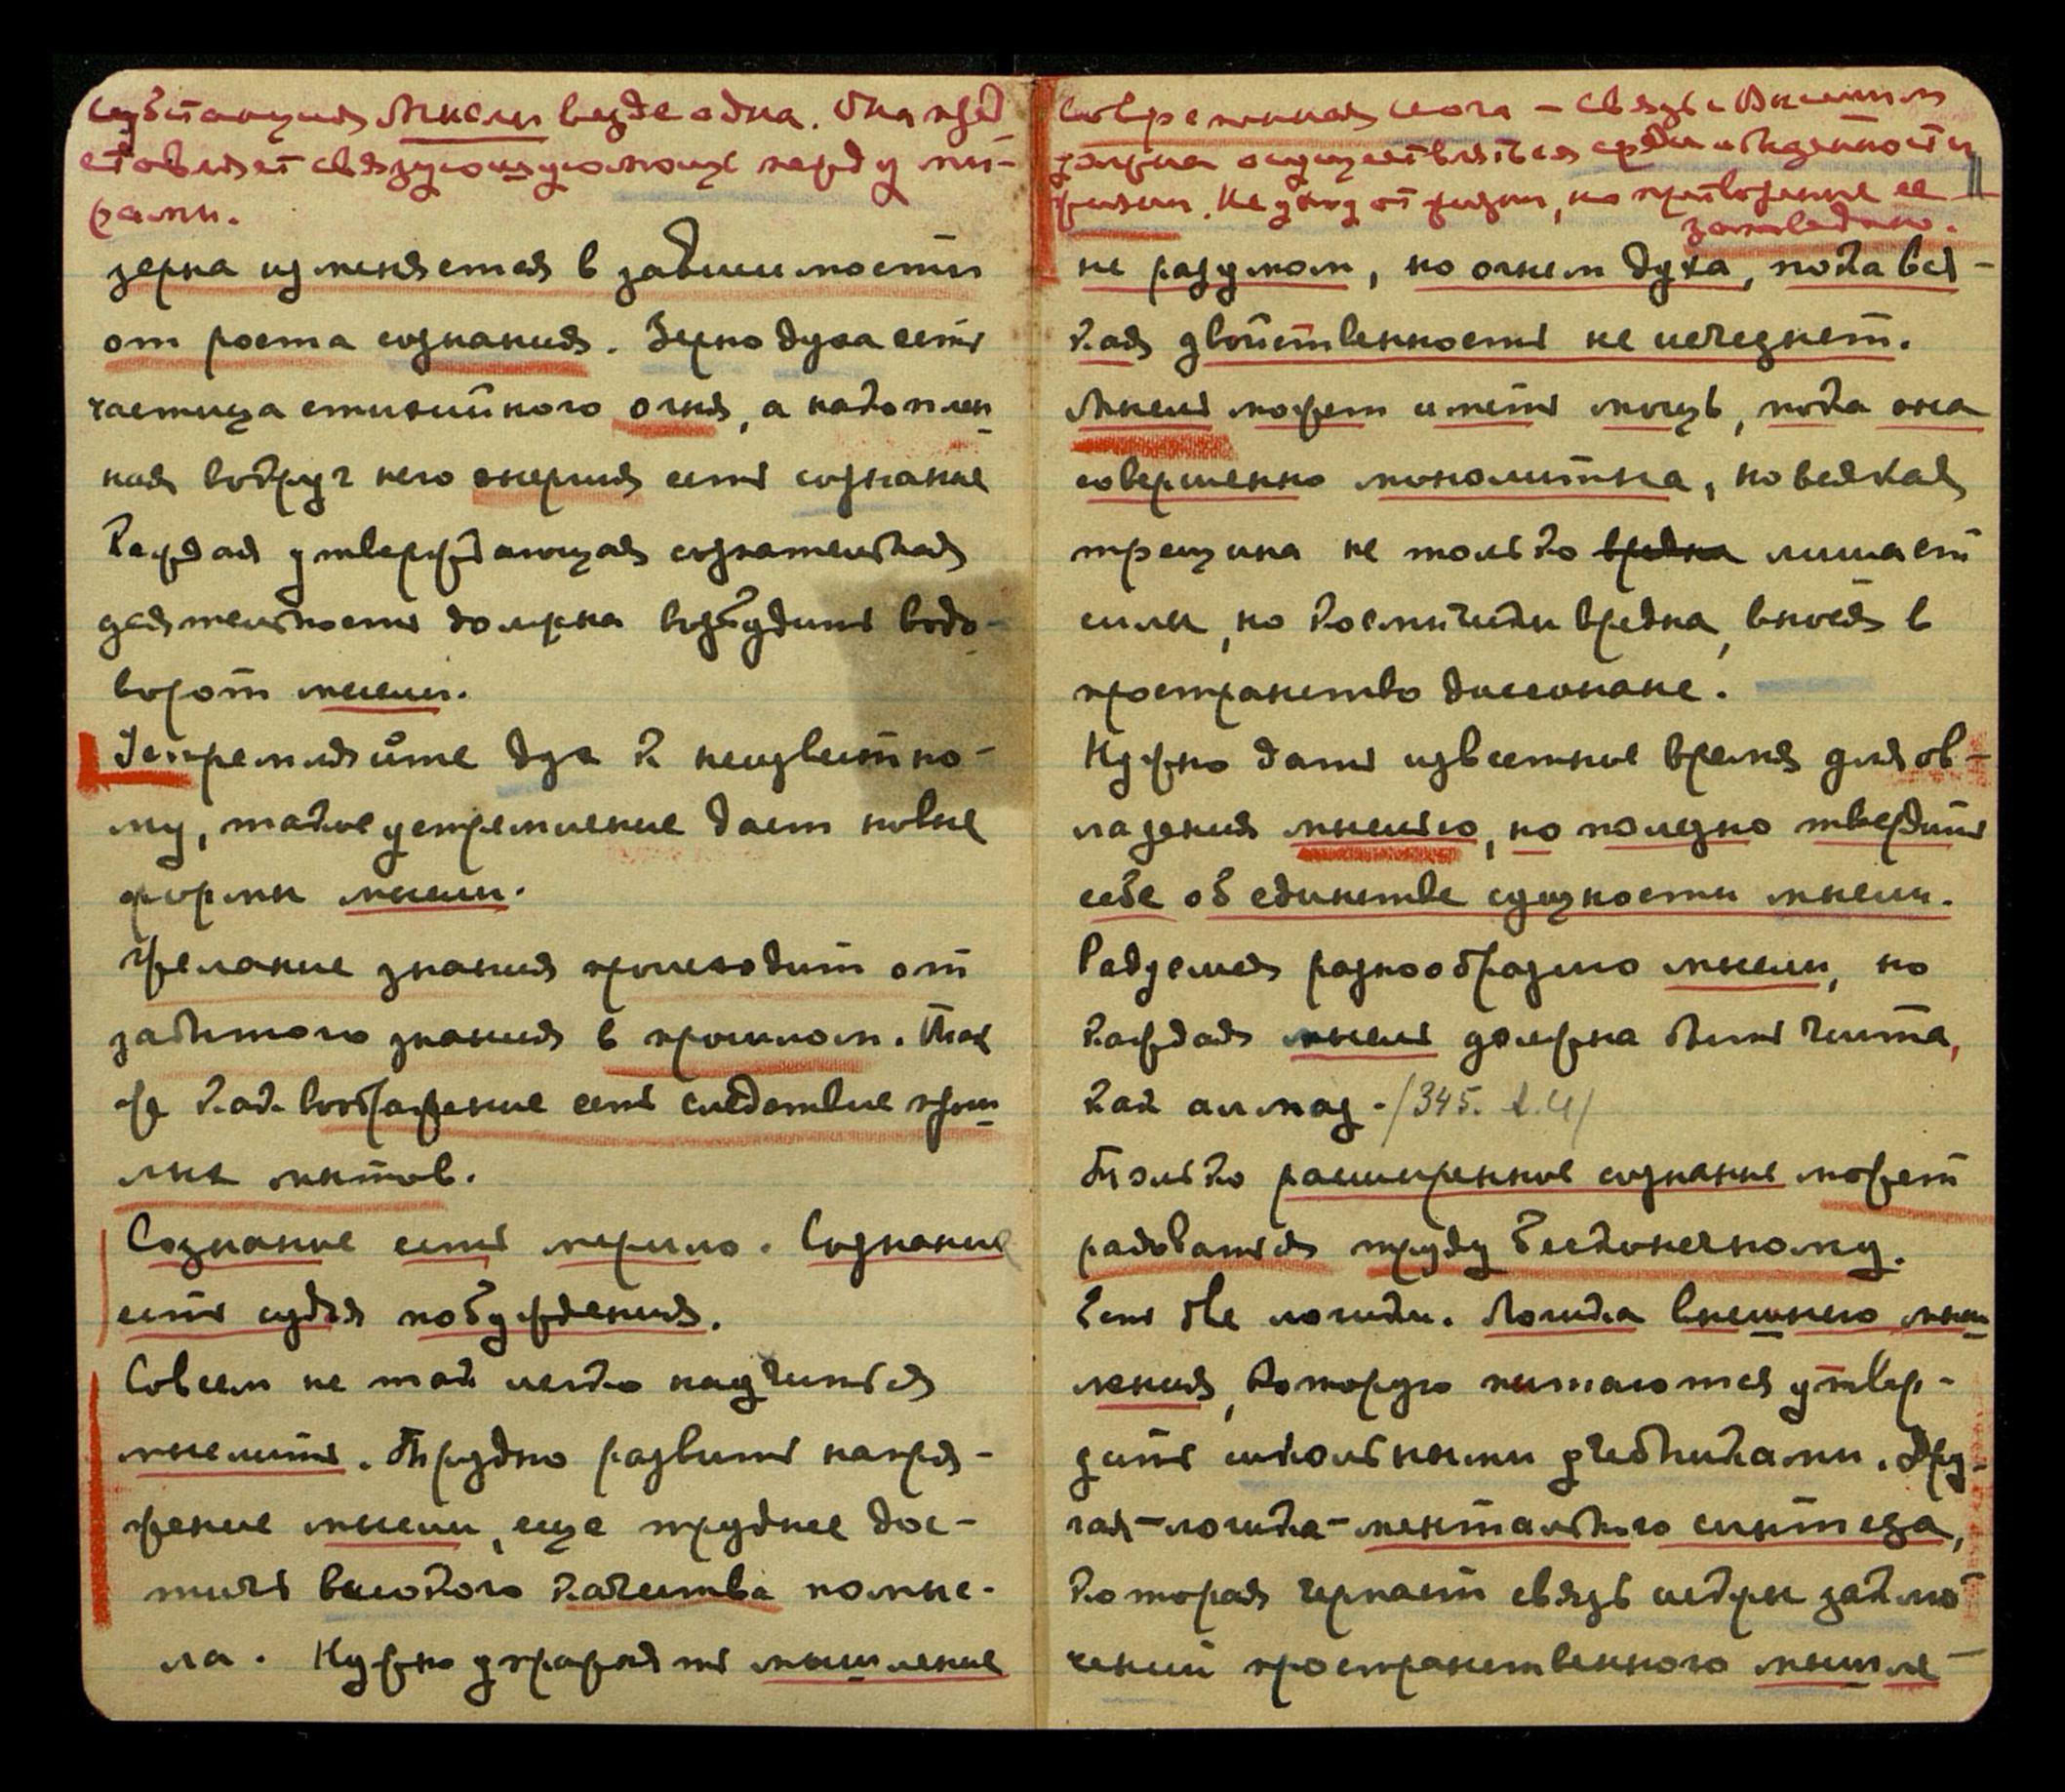 Субстанция Мысли везде одна. Она пред
ставляет связующую мощь между ми-
рами.
зерна изменяется в зависимости
от роста сознания. Зерно духа есть
частица стихийного огня, а накоплен
ная вокруг него энергия есть сознание
Каждая утверждающая сознательная
деятельность должна возбудить водо-
ворот мысли.
Устремляйте дух к неизвестно-
му, такое устремление дает новые
формы мысли.
Желание знания происходит от
забытого знания в прошлом. Так
же как воображение есть следствие прош
лых опытов.
Сознание есть мерило. Сознание
есть судья побуждения.
Совсем не так легко научиться
мыслить. Трудно развить напря-
жение мысли, еще труднее дос-
тичь высокого качества помыс-
ла. Нужно упражнять мышление
Современная йога – связь с Высшим
должна осуществляться среди обыденности
жизни. Не уход от жизни, но претворение ее
заповедано.
не разумом, но огнем духа, пока вся-
кая двойственность не исчезнет.
Мысль может иметь мощь, пока она
совершенно монолитна, но всякая
трещина не только вредна лишает
силы, но космически вредна, внося в
пространство диссонанс.
Нужно дать известное время для ов-
ладения мыслью, но полезно твердить
себе об единстве сущности мысли.
Радуемся разнообразию мысли, но
каждая мысль должна быть чиста,
как алмаз. /345. А.Й/
Только расширенное сознание может
радоваться труду бесконечному.
Есть две логики. Логика внешнего мыш
ления, которую пытаются утвер-
дить школьными учебниками. Дру-
гая – логика – ментального синтеза,
которая черпает связь искры заклю
чений пространственного мышле-